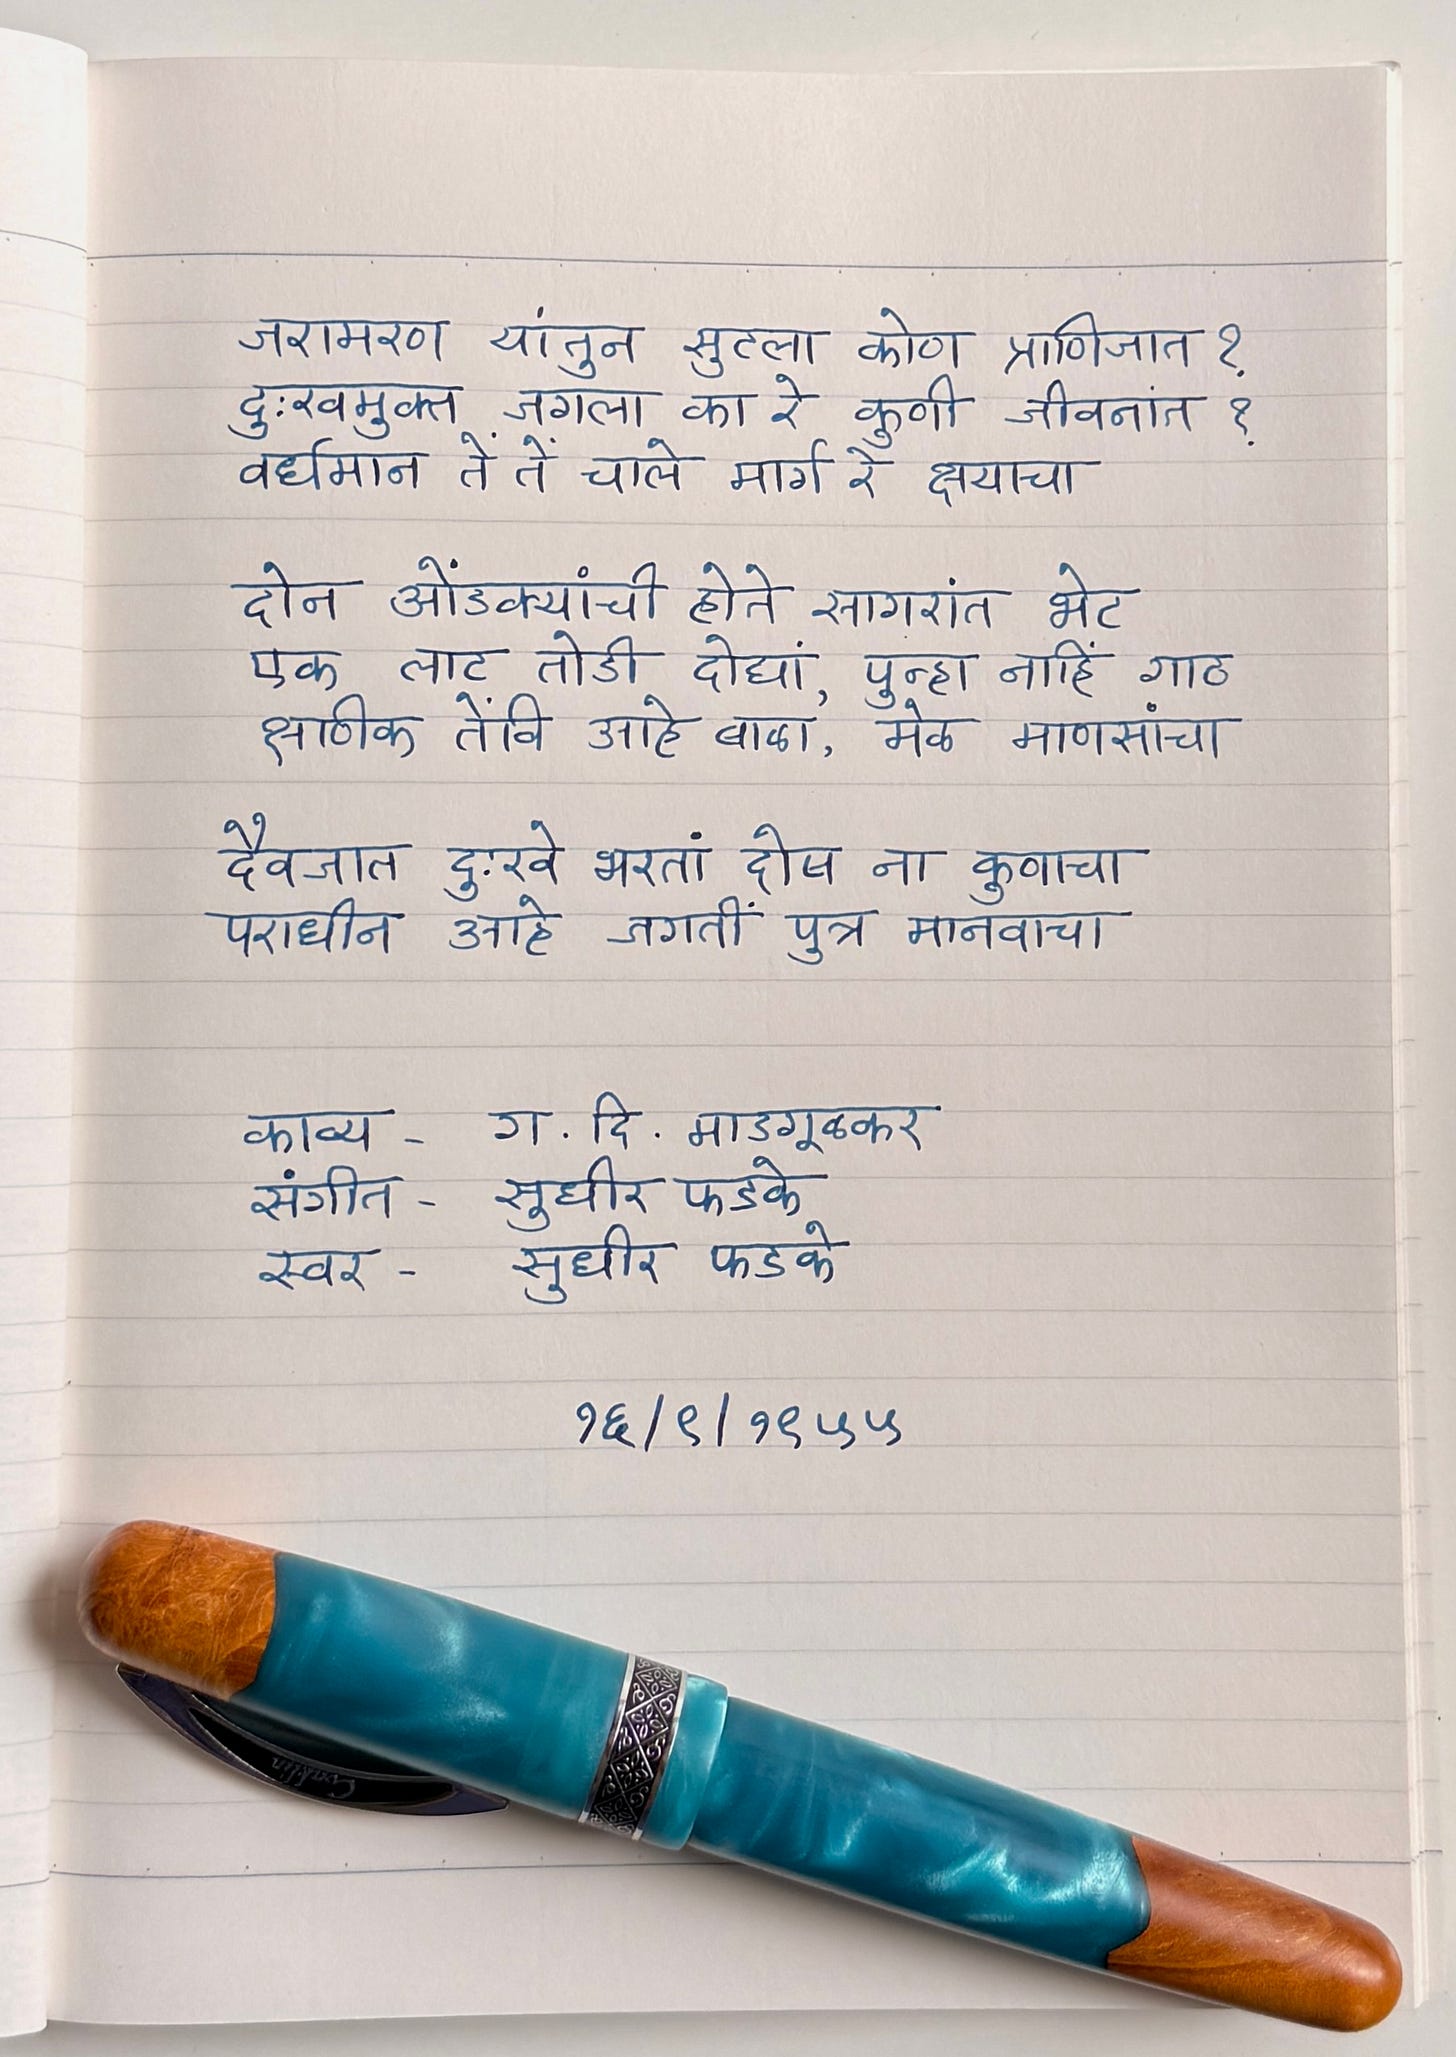 जरामरण यांतुन सुटला कोण प्राणिजात?
दुःखमुक्त जगला का रे कुणी जीवनांत?
वर्धमान तें तें चाले मार्ग रे क्षयाचा
दोन ओंडक्यांची होते सागरांत भेट
एक लाट तोडी दोघां, पुन्हा नाहिं गाठ
क्षणीक तेंवि आहे बाळा, मेळ माणसांचा
दैवजात दुःखे भरतां दोष ना कुणाचा
पराधीन आहे जगतीं पुत्र मानवाचा
काव्य - ग. दि. माडगूळकर
संगीत - सुधीर फडके
स्वर - सुधीर फडके
१६/९/१९५५
Conklin